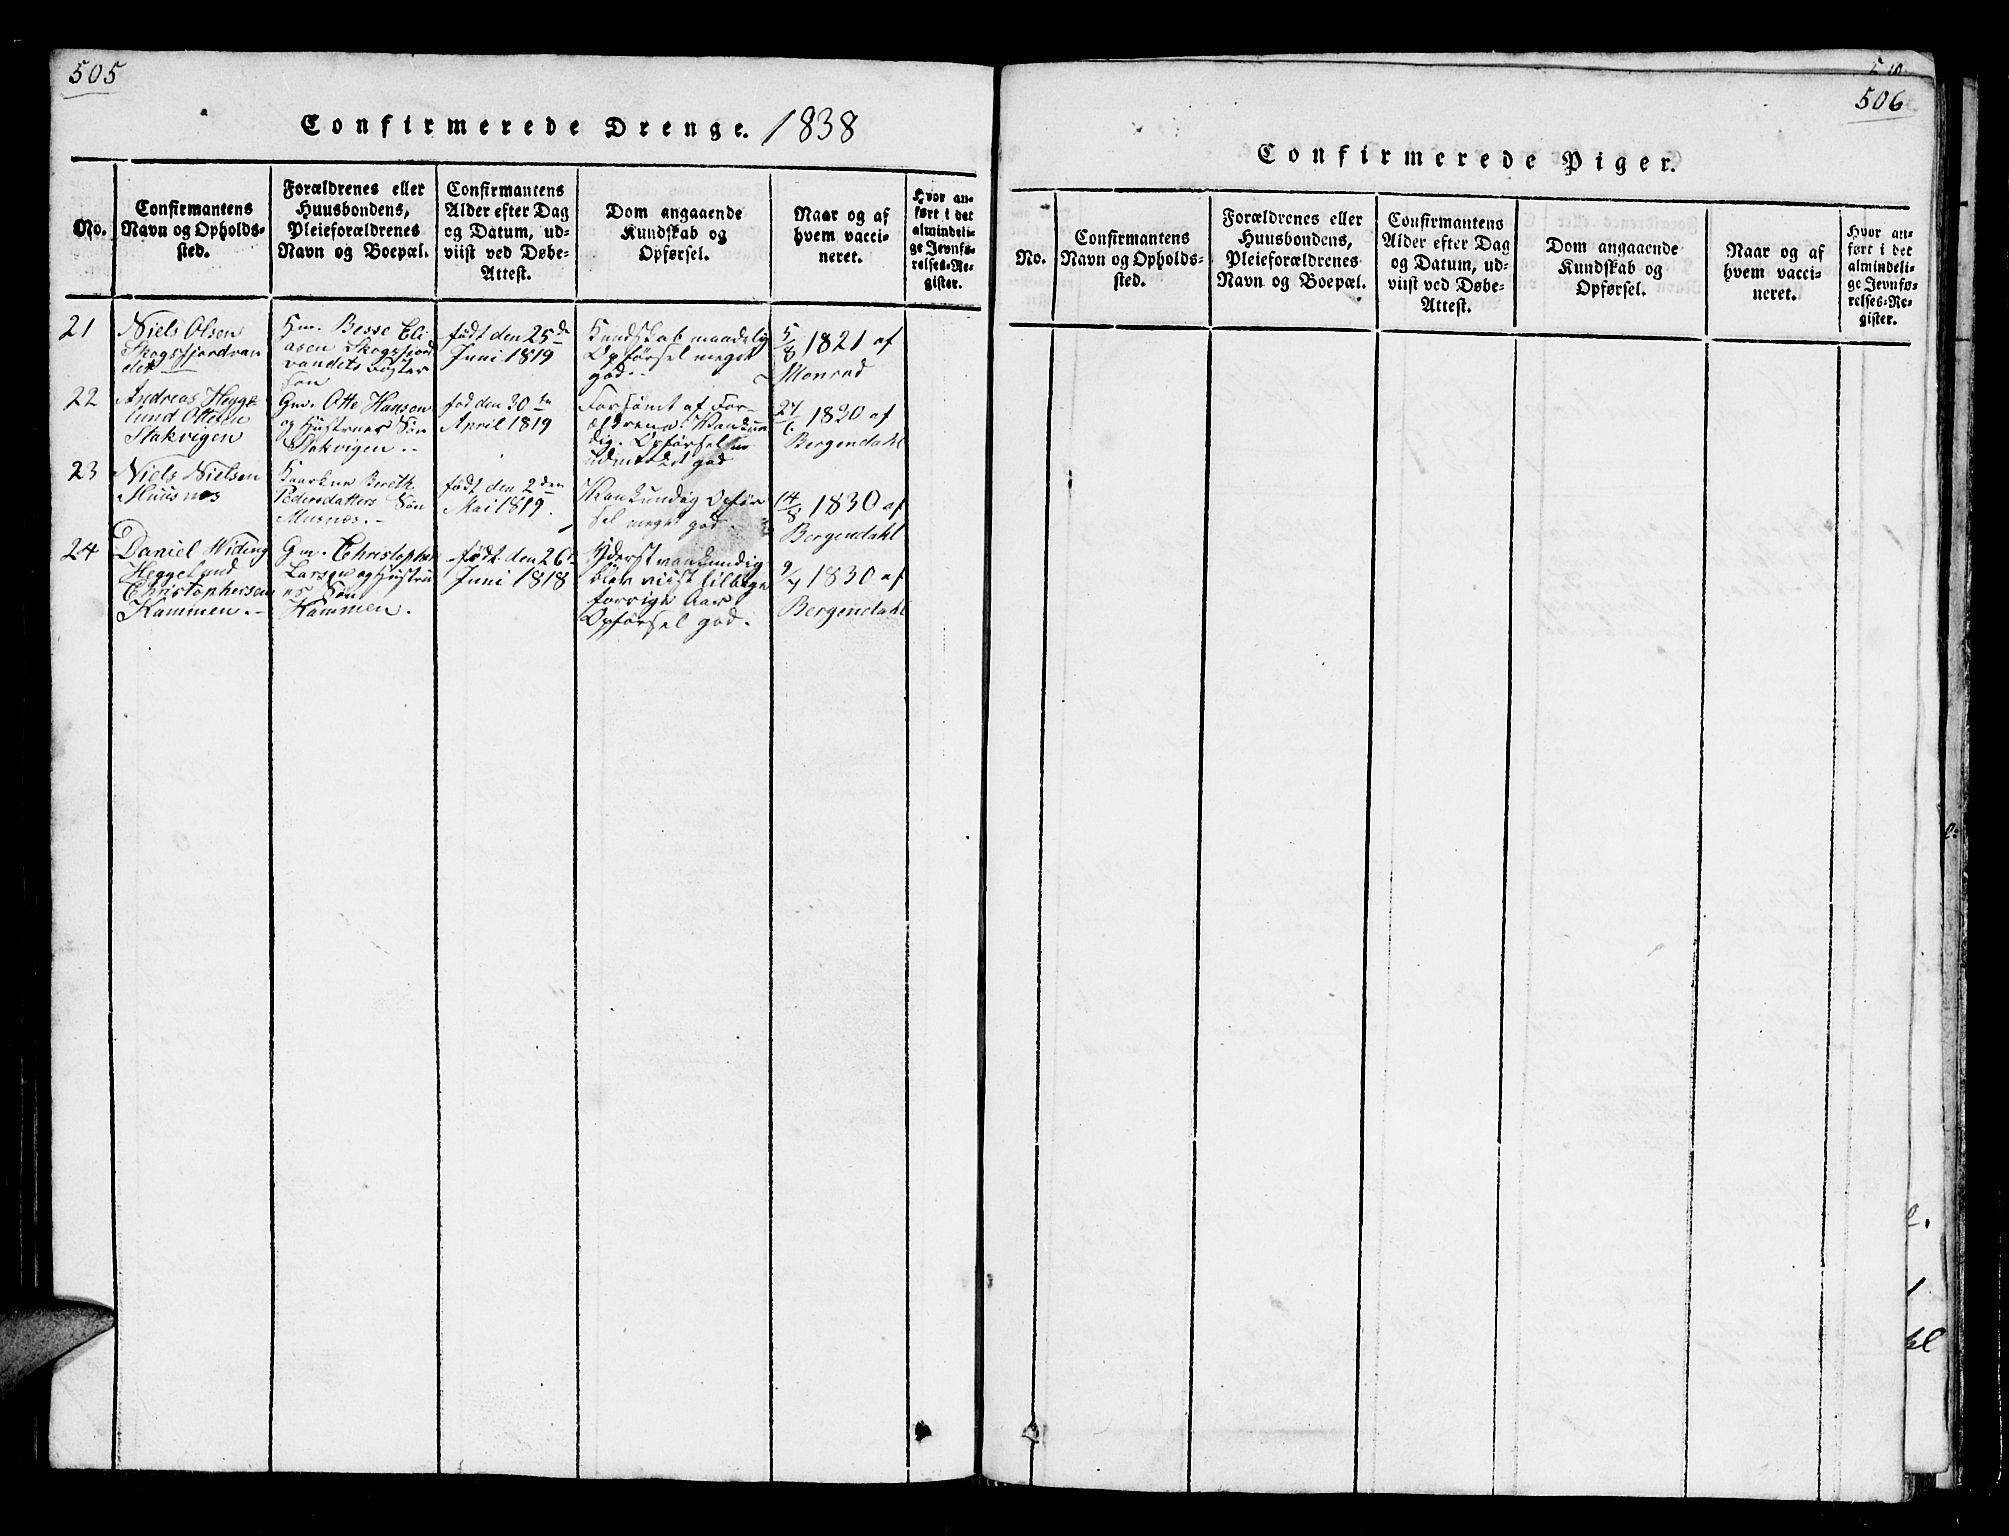 505
Confirmerede Drenge. 1838
No.
Confirmantens
Navn og Opholds-
sted.
Forældrenes eller
Huusbondens,
Pleieforældrenes
Navn og Boepæl.
Confirmantens
Alder efter Dag
og Datum, ud-
viist ved Døbe-
Attest.
Dom angaaende
Kundskab og
Opførsel.
Naar og af
hvem vacci-
neret.
Hvor an-
ført i det
almindeli-
ge Jevnfø-
relses-Re-
gister.
21
Niels Olsen
Skogsfjordvan
det
Hm. Besse Eli
asen Skogsfjord
vandets Foster
søn
født den 25de
Juni 1819
Kundskab maadelig
Opførsel meget
god.
5/8 1821 af
Monrad
22
Andreas Hegge
lund Ottesen
Stakvigen
Gm. Otte Hansen
og Hustrues Søn
Stakvigen
fød den 30te
April 1819
Forsømt af For-
ældrene. Vankun
dig. Opførselen
udmærket god
27/6 1830 af
Bergendahl
23
Niels Nielsen
Muusnes
Enken Bereth
Pedersdatters Søn
Musnæs.
født den 2den
Mai 1819.
Vankundig Opfør
sel meget god.
14/8 1830 af
Bergendahl
24
Daniel Widing
Heggelund
Christophersen
Kammen.
Gm. Christopher
Larsen og Hustru
es Søn
Kammen.
født den 26
Juni 1818
Yderst vankundig
blev viist tilbage
forrige Aar
Opførsel god.
9/7 1830 af
Bergendahl
506
Confirmerede Piger.
No.
Confirmantens
Navn og Opholds-
sted.
Forældrenes eller
Huusbondens,
Pleieforældrenes
Navn og Boepæl.
Confirmantens
Alder efter Dag
og Datum, ud-
viist ved Døbe-
Attest.
Dom angaaende
Kundskab og
Opførsel.
Naar og af
hvem vacci-
neret.
Hvor an-
ført i det
almindeli-
ge Jevnfø-
relses-Re-
gister.